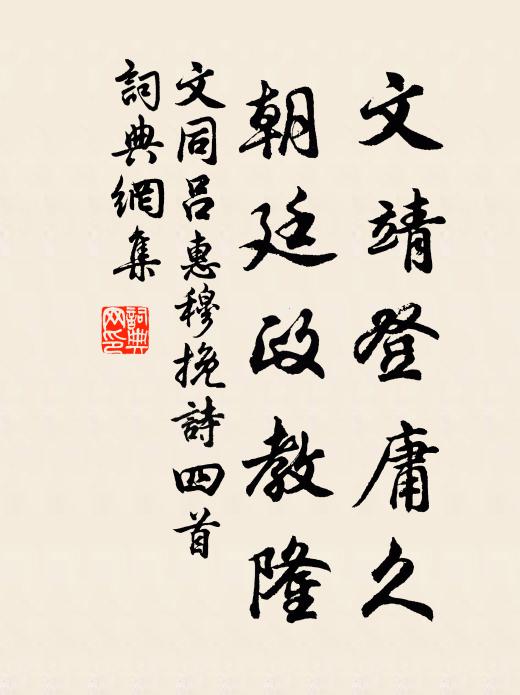 文靖登庸久
朝廷政教隆
文同吕惠穆挽詩四首
詞典網集
詞典网印